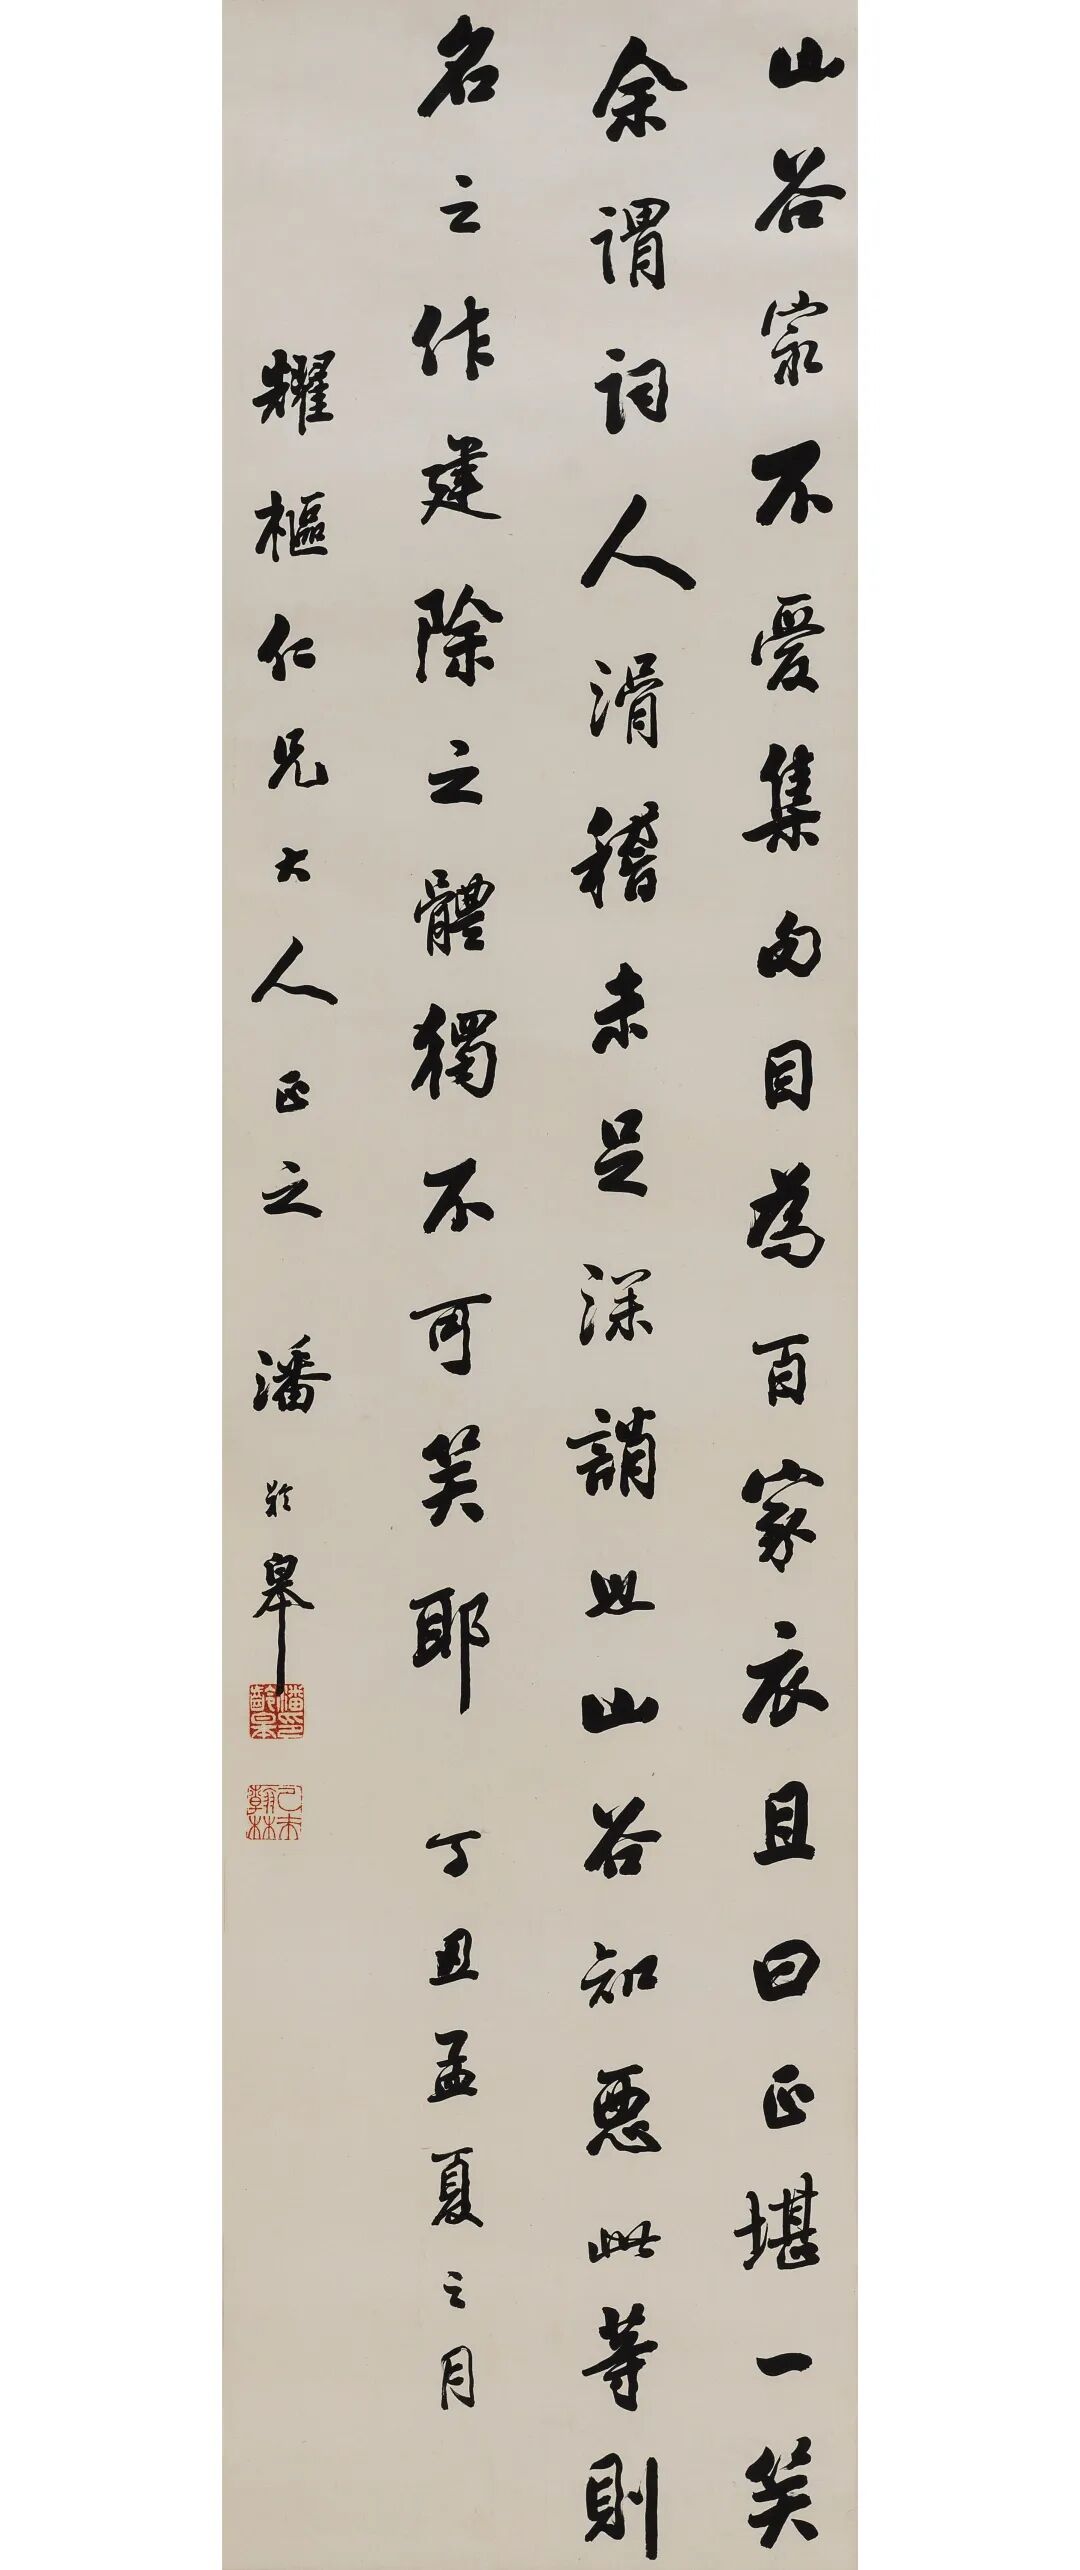 山谷㝡不愛集句目為百家衣且曰正堪一笑
余謂詞人滑稽未足深誚也山谷知惡此等則
名之作建除之體獨不可笑耶 丁丑孟夏之月
耀樞仁兄大人正之 潘齡皋
潘印齡皋
己未翰林